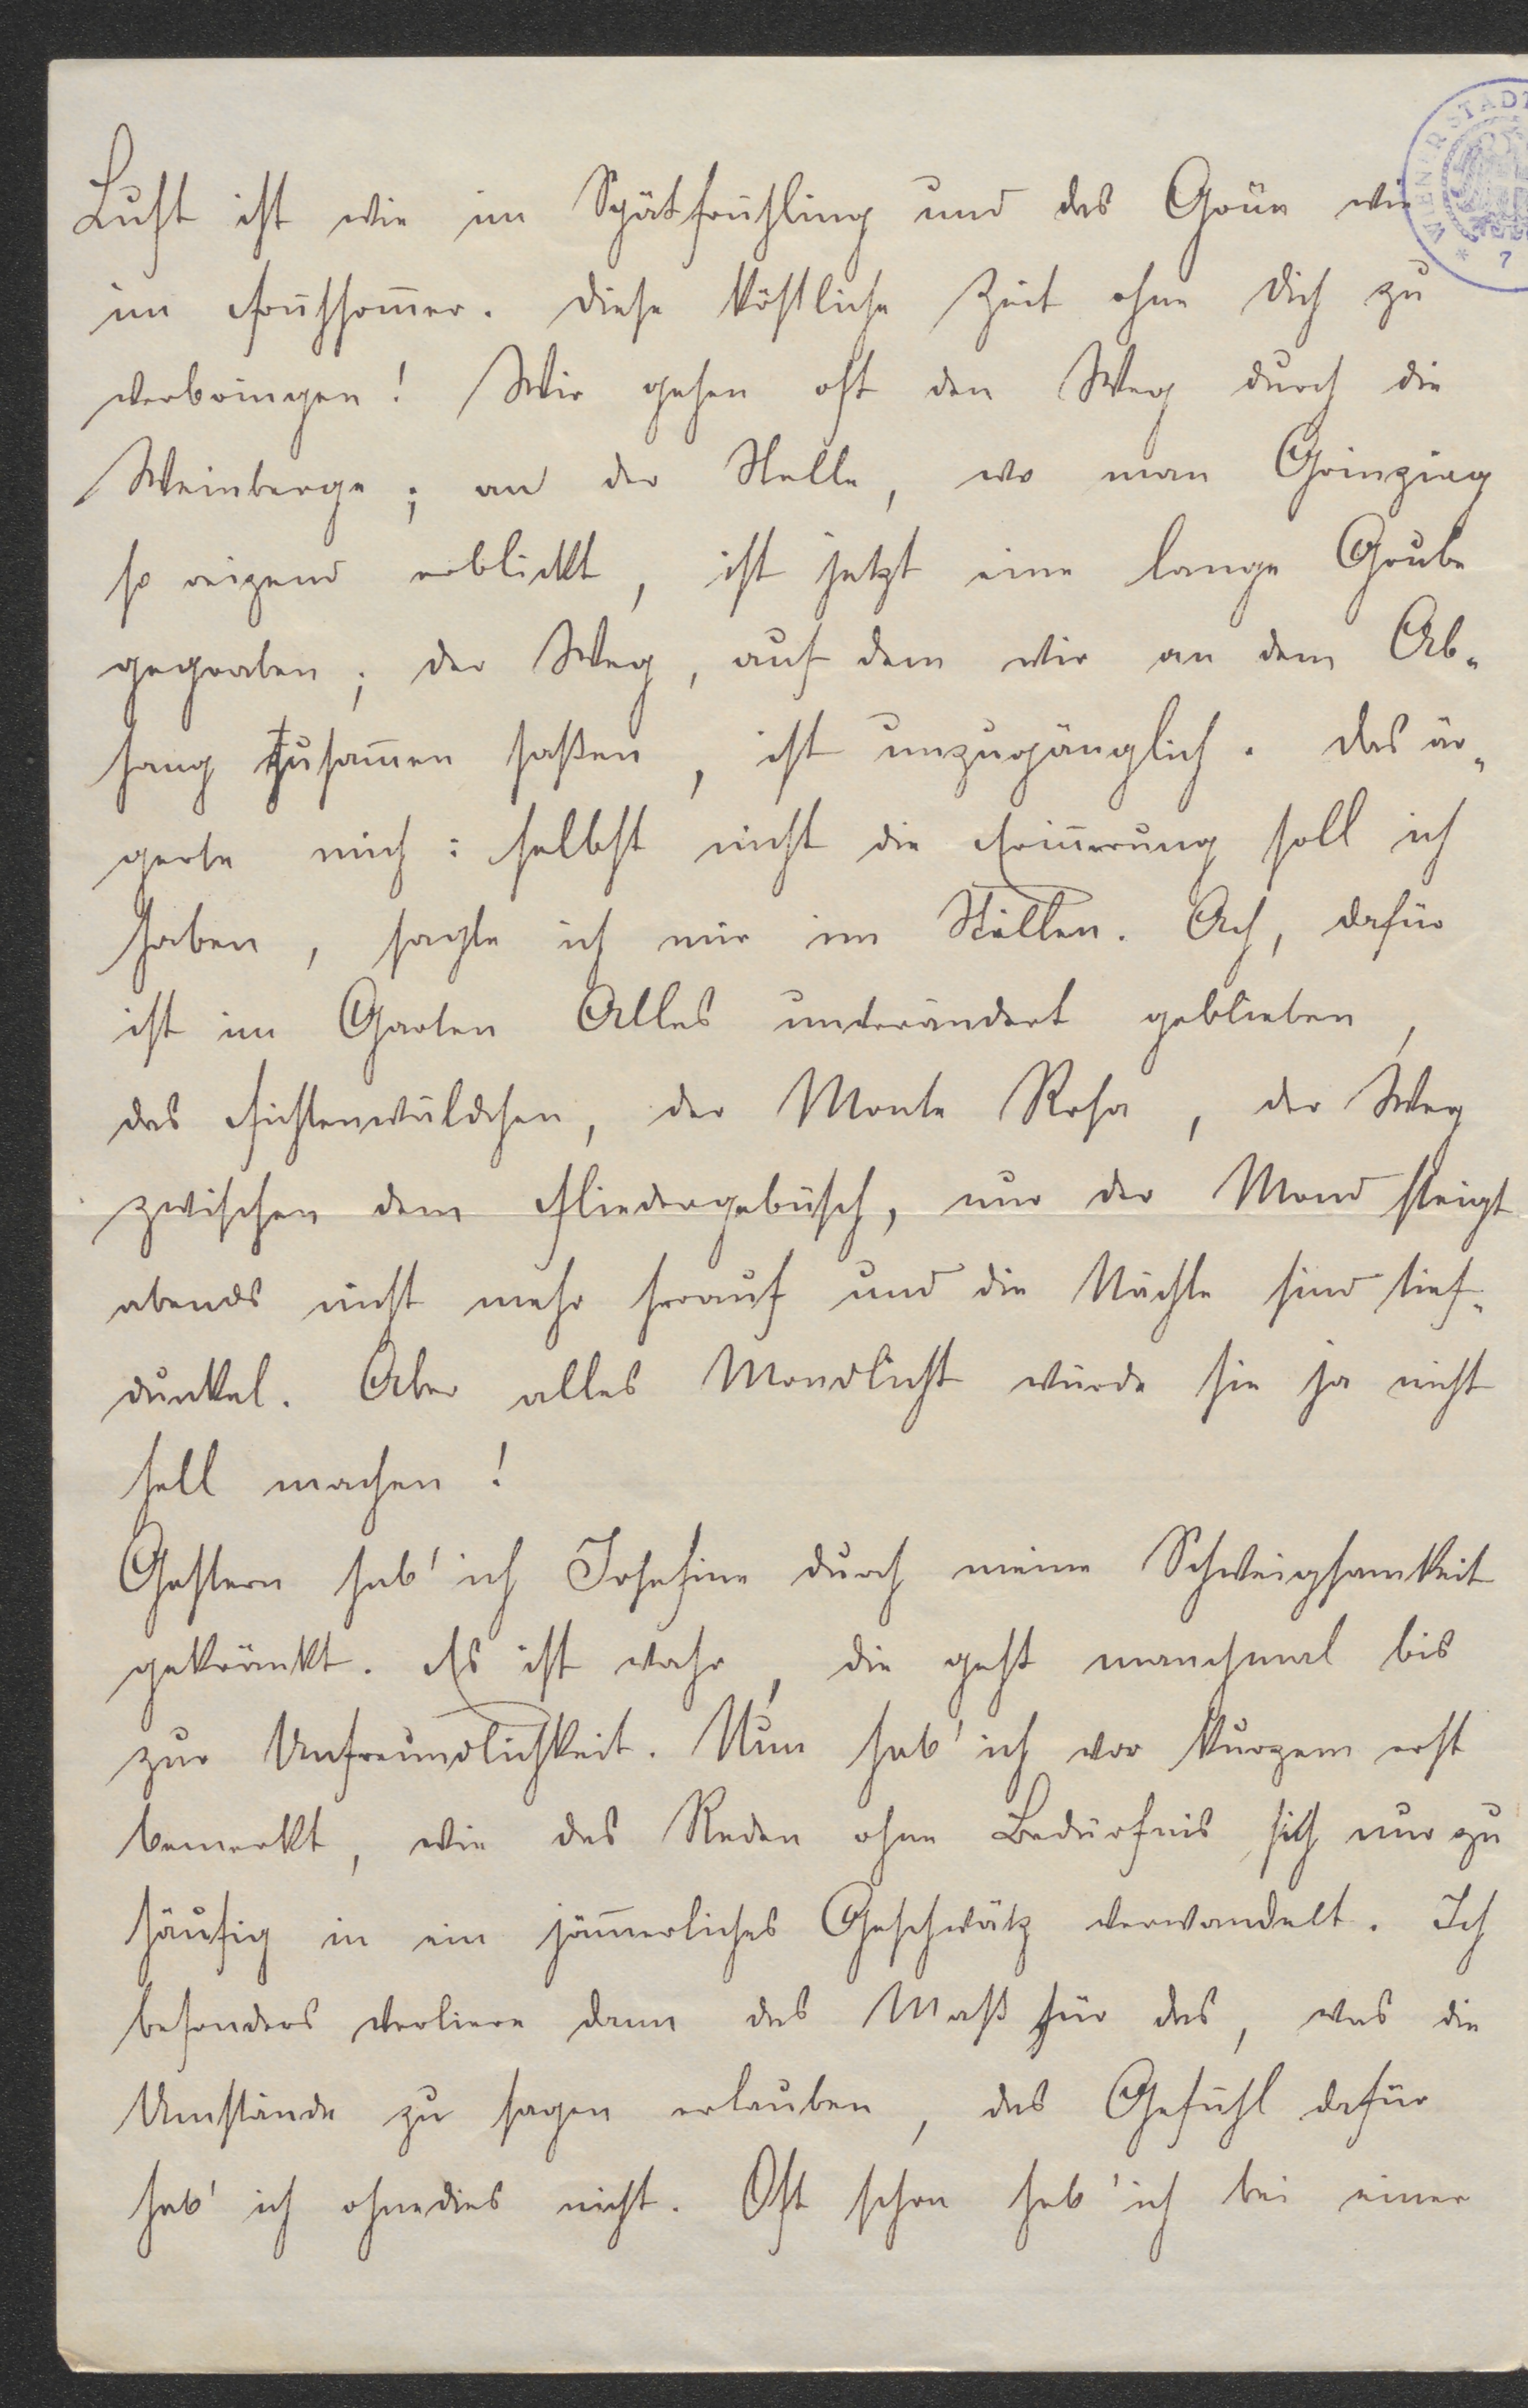 Luft ist wie im Spätfrühling und das Grün wie
im Frühsom̅er. Diese köstliche Zeit ohne Dich zu
verbringen! Wir gehen oft den Weg durch die
Weinberge; an der Stelle, wo man Grinzing
so reizend erblickt, ist jetzt eine lange Grube
gegraben; der Weg, auf dem wir an dem Ab-
hang zusam̅en saßen, ist unzugänglich. Das är-
gerte mich: selbst nicht die Erin̅erung soll ich
haben, sagte ich mir im Stillen. Ach, dafür
ist im Garten Alles unverändert geblieben,
das Fichtenwäldchen, der Monte Rosa, der Weg
zwischen dem Fliedergebüsch, nur der Mond steigt
abends nicht mehr herauf und die Nächte sind tief-
dunkel. Aber alles Mondlicht würde sie ja nicht
hell machen!
Gestern hab' ich Josefine durch meine Schweigsamkeit
gekränkt. Es ist wahr, die geht manchmal bis
zur Unfreundlichkeit. Nun hab' ich vor Kurzem erst
bemerkt, wie das Reden ohne Bedürfnis sich nur zu
häufig in ein jäm̅erliches Geschwätz verwandelt. Ich
besonders verliere dann das Maß für das, was die
Umstände zu sagen erlauben, das Gefühl dafür
hab' ich ohnedies nicht. Oft schon hab' ich bei einer
WIENER STADT
* 7